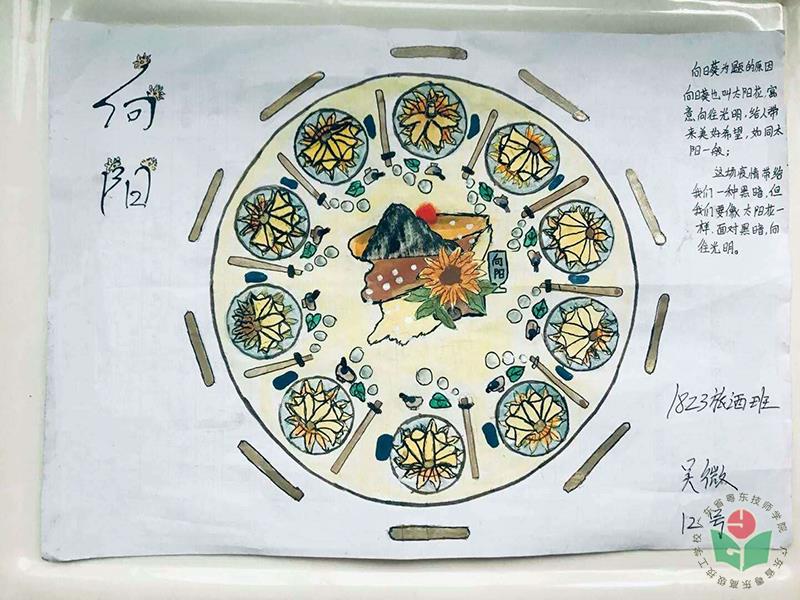 向
阳
向日葵为题的原因
向日葵也叫太阳花,寓
意向往光明,给人带
来美好希望,如同太
阳一般;
这场疫情带给
我们一种黑暗,但
我们要像太阳花一
样,面对黑暗,向
往光明。
向阳
1823旅酒班
吴微
12号
广东省粤东技师学院
广东省粤东高级技工学校